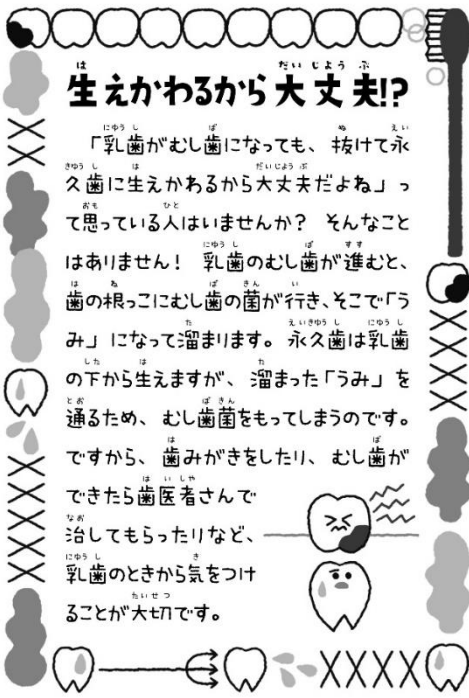 生えかわるから大丈夫!?
「乳歯がむし歯になっても、抜けて永
久歯に生えかわるから大丈夫だよね」っ
て思っている人はいませんか？ そんなこと
はありません！ 乳歯のむし歯が進むと、
歯の根っこにむし歯の菌が行き、そこで「う
み」になって溜まります。永久歯は乳歯
の下から生えますが、溜まった「うみ」を
通るため、むし歯菌をもってしまうのです。
ですから、歯みがきをしたり、むし歯が
できたら歯医者さんで
治してもらったりなど、
乳歯のときから気をつけ
ることが大切です。